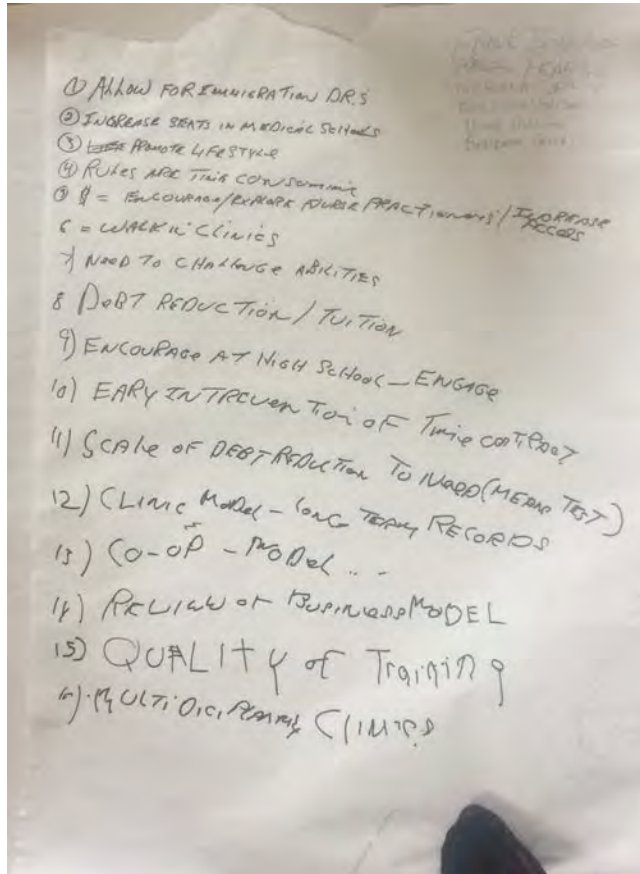 ① ALLOW FOR IMMIGRATION DRS
② INCREASE SEATS IN MEDICAL SCHOOLS
③ PROMOTE LIFESTYLE
④ RULES ARE TIME CONSUMING
⑤ $ = ENCOURAGE/EXPLORE NURSE PRACTIONERS / INCREASE ACCESS
6 = WALK IN CLINICS
7) NEED TO CHALLENGE ABILITIES
8 DEBT REDUCTION / TUITION
9) ENCOURAGE AT HIGH SCHOOL - ENGAGE
10) EARY INTREVENTION OF TIME CONTRACT
11) SCALE OF DEBT REDUCTION TO NEED (MEANS TEST)
12) CLINIC MODEL - LONG TERM RECORDS
13) CO-OP - MODEL ..
14) REVIEW OF BUSINESS MODEL
15) QUALITY of Training
16) MULTIDICIPLANARY CLINICS